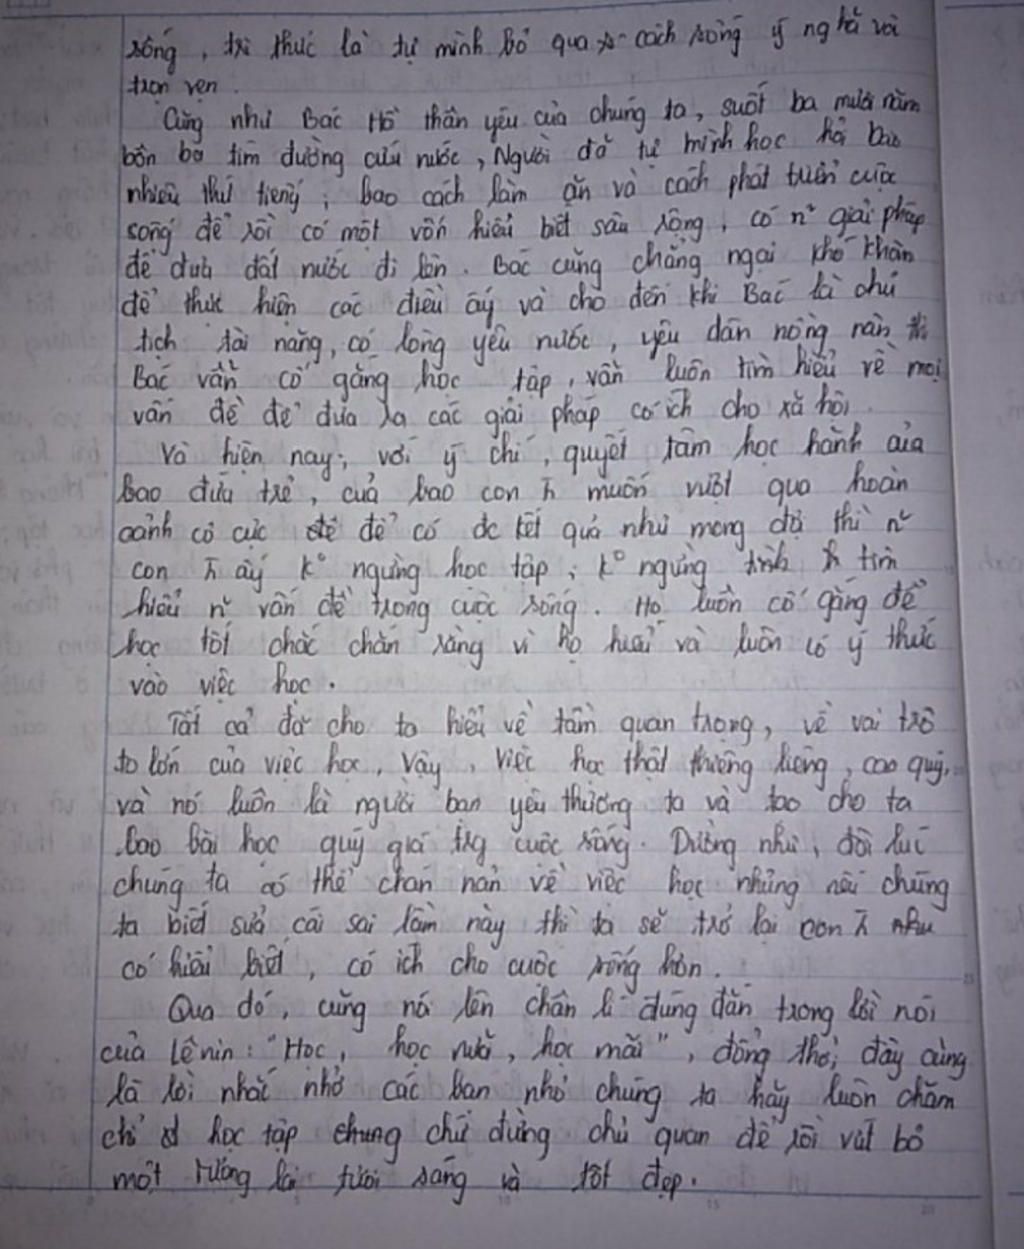 sống, tri thức là tự mình bỏ qua cách sống ý nghĩa và
trọn vẹn.
Cũng như Bác Hồ thân yêu của chúng ta, suốt ba mươi năm
bôn ba tìm đường cứu nước, Người đã tự mình học hỏi bao
nhiêu thứ tiếng, bao cách làm ăn và cách phát triển cuộc
sống để rồi có một vốn hiểu biết sâu rộng, có n² giải pháp
để đưa đất nước đi lên. Bác cũng chẳng ngại khó khăn
để thực hiện các điều ấy và cho đến khi Bác là chủ
tịch tài năng, có lòng yêu nước, yêu dân nồng nàn thì
Bác vẫn cố gắng học tập, vẫn luôn tìm hiểu về mọi
vấn đề để đưa ra các giải pháp có ích cho xã hội.
Và hiện nay, với ý chí, quyết tâm học hành của
bao đứa trẻ, của bao con ñ muốn vượt qua hoàn
cảnh cơ cực để có đc kết quả như mong đợi thì n²
con ñ ấy k° ngừng học tập, k° ngừng tìm
hiểu n² vấn đề trong cuộc sống. Họ luôn cố gắng để
học tốt chắc chắn rằng vì họ hiểu và luôn có ý thức
vào việc học.
Tất cả đã cho ta hiểu về tầm quan trọng, về vai trò
to lớn của việc học, vậy, việc học thật thiêng liêng, cao quý,
và nó luôn là người bạn yêu thương ta và tạo cho ta
bao bài học quý giá trg cuộc sống. Dường như, đôi lúc
chúng ta có thể chán nản về việc học nhưng nếu chúng
ta biết sửa cái sai lầm này thì ta sẽ trở lại con ñ như
có hiểu biết, có ích cho cuộc sống hơn.
Qua đó, cũng nói lên chân lí đúng đắn trong lời nói
của Lênin: "Học, học nữa, học mãi", đồng thời đây cũng
là lời nhắc nhở các bạn nhỏ chúng ta hãy luôn chăm
chỉ học tập chung chứ đừng chủ quan để rồi vứt bỏ
một tương lai tươi sáng và tốt đẹp.